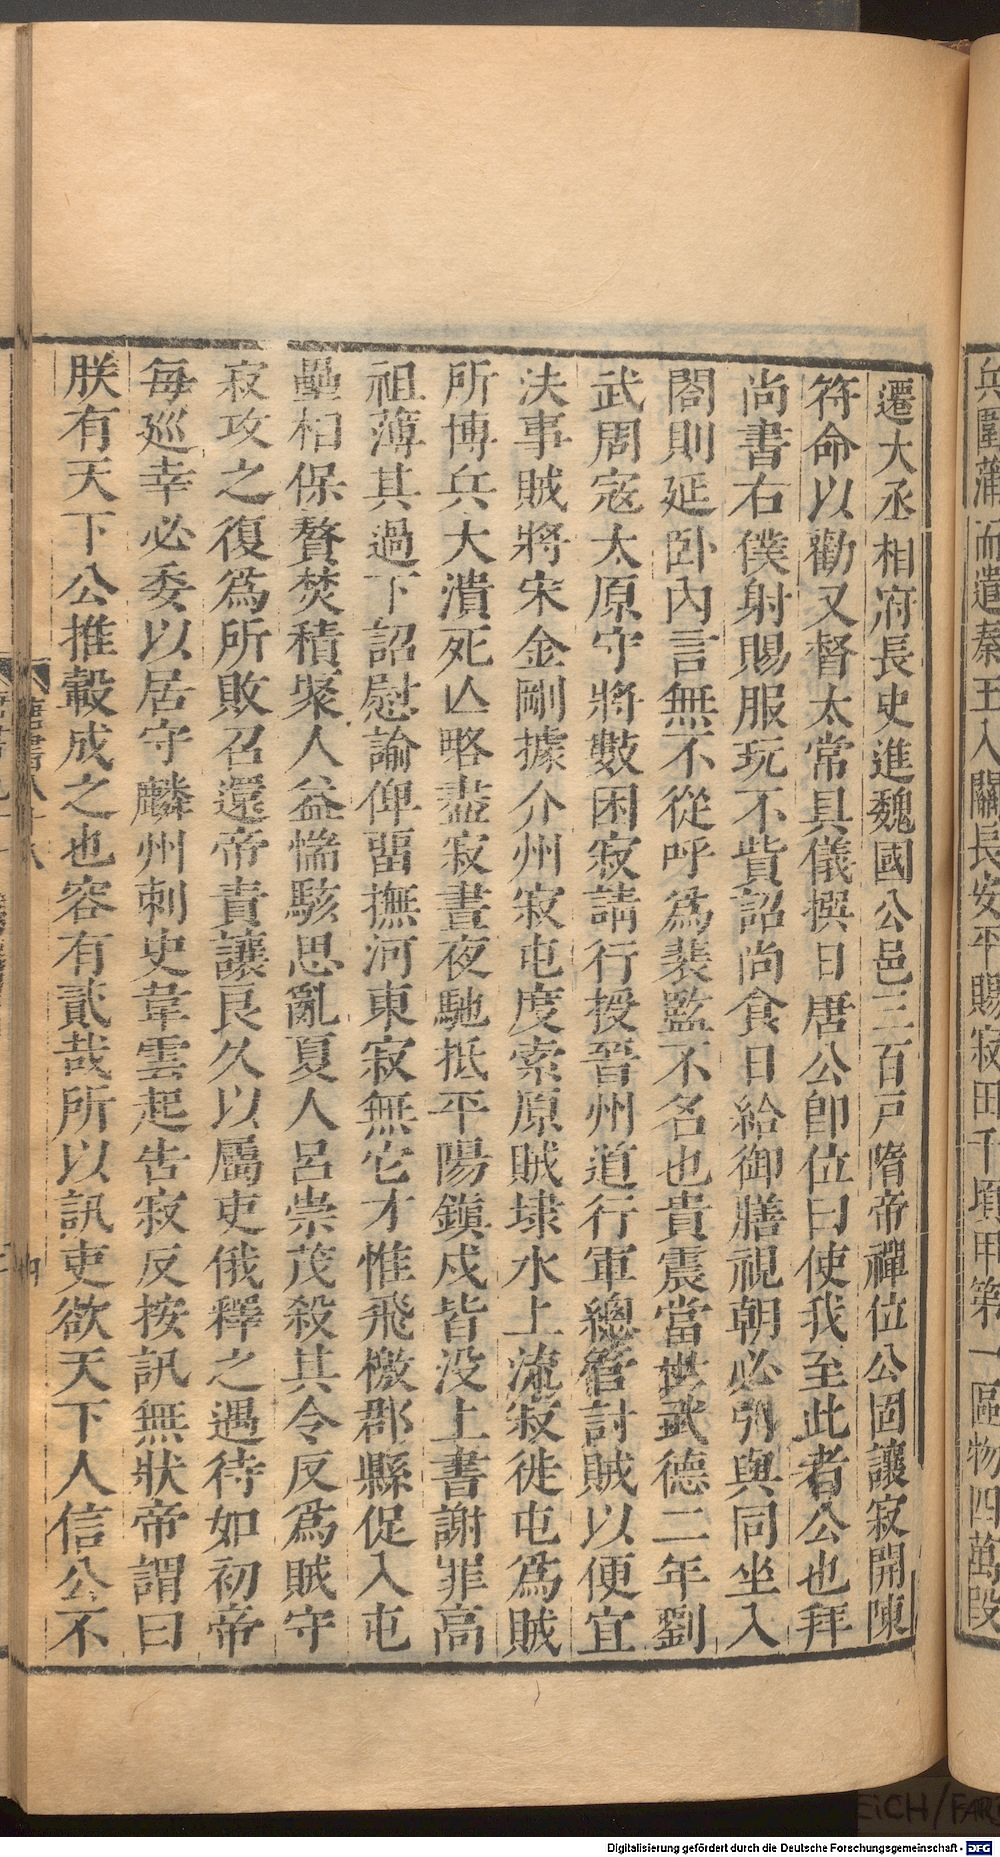 兵圍蒲而遣秦王入關長安平賜寂田千頃甲第一區物四萬段
遷大丞相府長史進魏國公邑三百戸隋帝禪位公固讓寂開陳
符命以勸又督太常具儀撰日唐公卽位曰使我至此者公也拜
尚書右僕射賜服玩不貲詔尚食日給御膳視朝必引與同坐入
閤則延卧內言無不從呼爲裴監不名也貴震當世武德二年劉
武周寇太原守將數困寂請行授晉州道行軍總管討賊以便宜
决事賊將宋金剛據介州寂屯度索原賊埭水上流寂徙屯爲賊
所博兵大潰死亾略盡寂晝夜馳抵平陽鎮戍皆没上書謝罪高
祖薄其過下詔慰諭俾畱撫河東寂無它才惟飛檄郡縣促入屯
壘相保贅焚積聚人益惴駭思亂夏人呂崇茂殺其令反爲賊守
寂攻之復爲所敗召還帝責讓良久以屬吏俄釋之遇待如初帝
每巡幸必委以居守麟州刺史韋雲起告寂反按訊無狀帝謂曰
朕有天下公推轂成之也容有貳哉所以訊吏欲天下人信公不
Digitalisierung gefördert durch die Deutsche Forschungsgemeinschaft - DFG